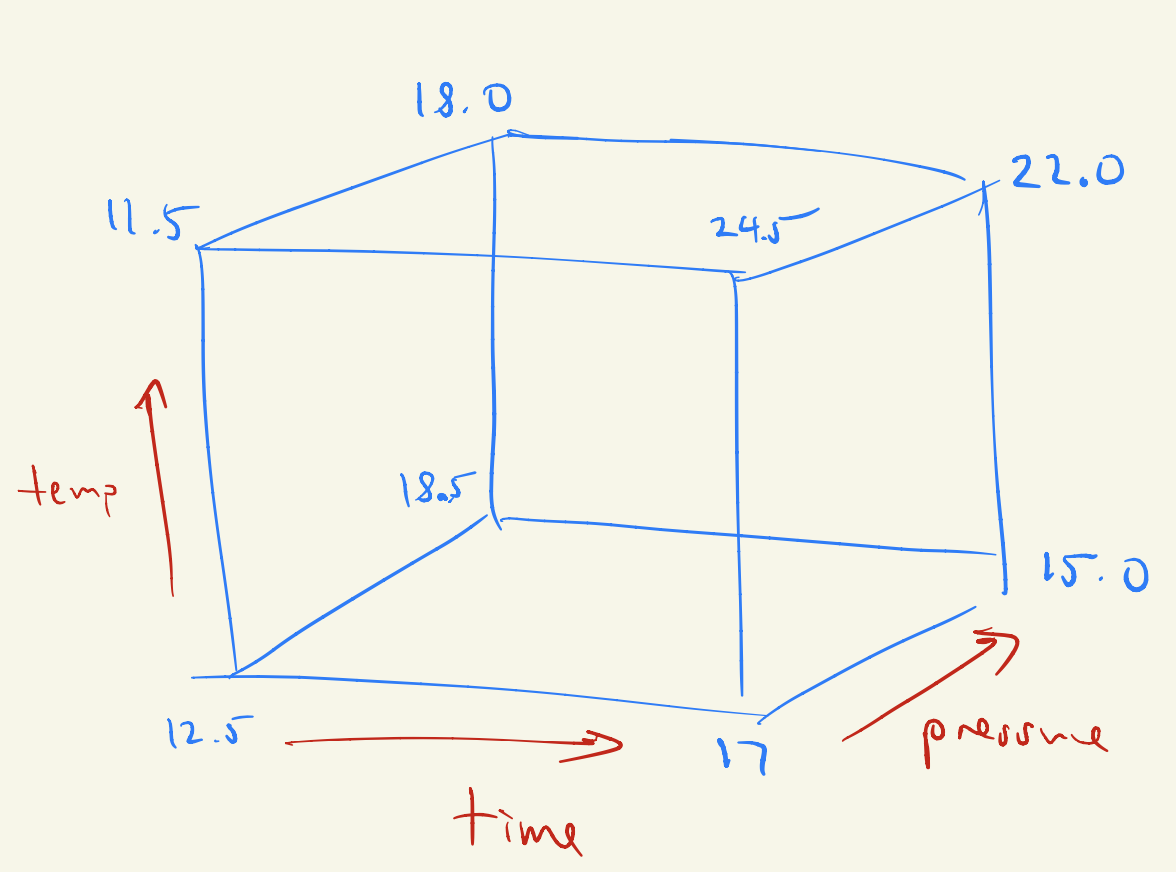 18.0
22.0
11.5
24.5
temp
18.5
15.0
12.5
17
pressure
time